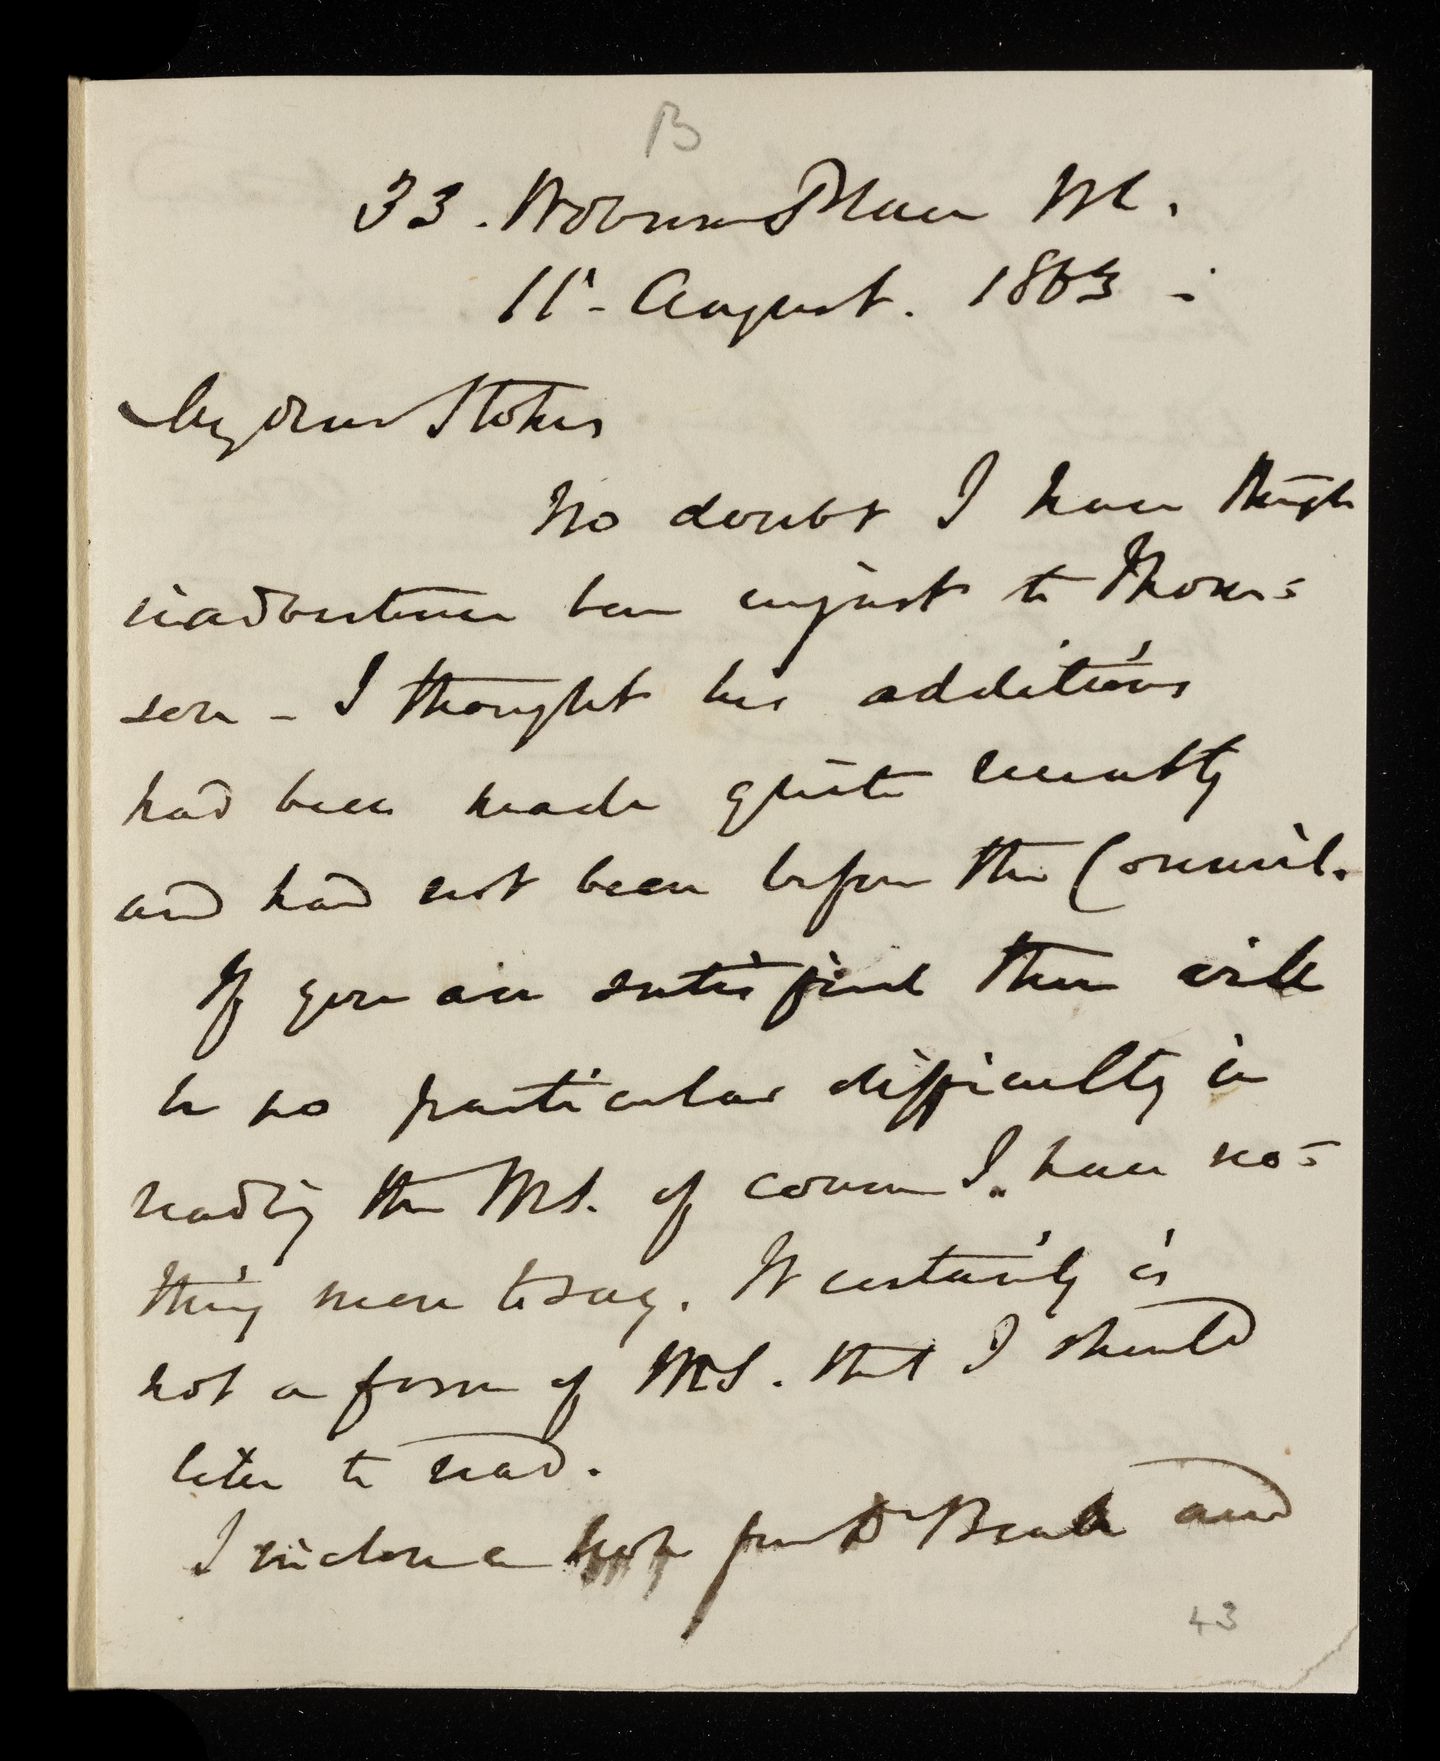 B
33. Woburn Place WC.
11- August. 1863 -
My dear Stokes
No doubt I have through
inadvertence been unjust to Thom=
son - I thought his additions
had been made quite recently
and had not been before the Council.
If you are satisfied there will
be no particular difficulty in
reading the MS. of course I have no=
thing more to say. It certainly is
not a form of MS. that I should
like to read.
I inclose a note from Dr Beale and
43